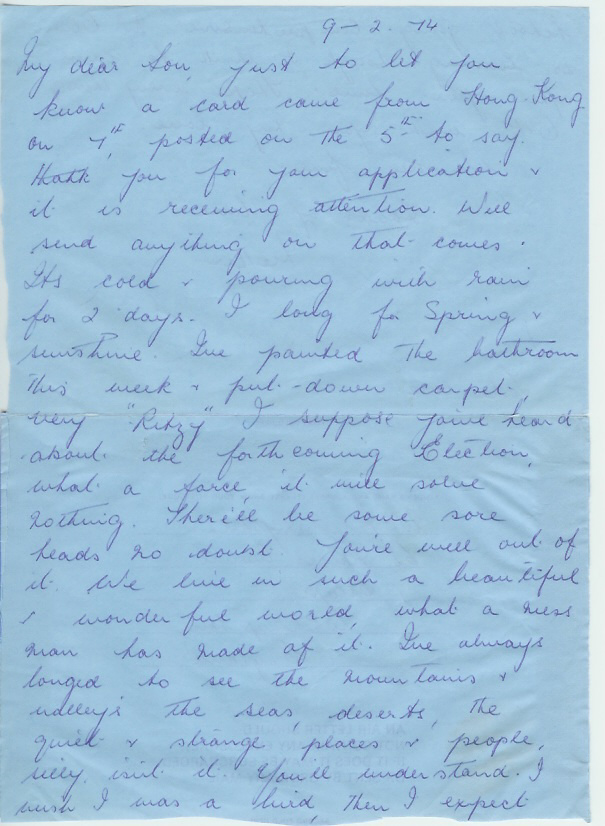 9-2-74
My dear Son, just to let you
know a card came from Hong-Kong
on 7th, posted on the 5th to say.
thank you for your application &
it is receiving attention. Will
send anything on that comes.
Its cold & pouring with rain
for 2 days. I long for Spring &
sunshine. I've painted the bathroom
this week & put-down carpet,
very "Ritzy" I suppose you've heard
about the forthcoming Election,
what a farce, it will solve
nothing. There'll be some sore
heads no doubt. You're well out of
it. We live in such a beautiful
& wonderful world, what a mess
man has made of it. I've always
longed to see the mountains &
valleys the seas, deserts, the
quiet & strange places & people,
silly, isn't it. You'll understand. I
wish I was a bird, then I expect